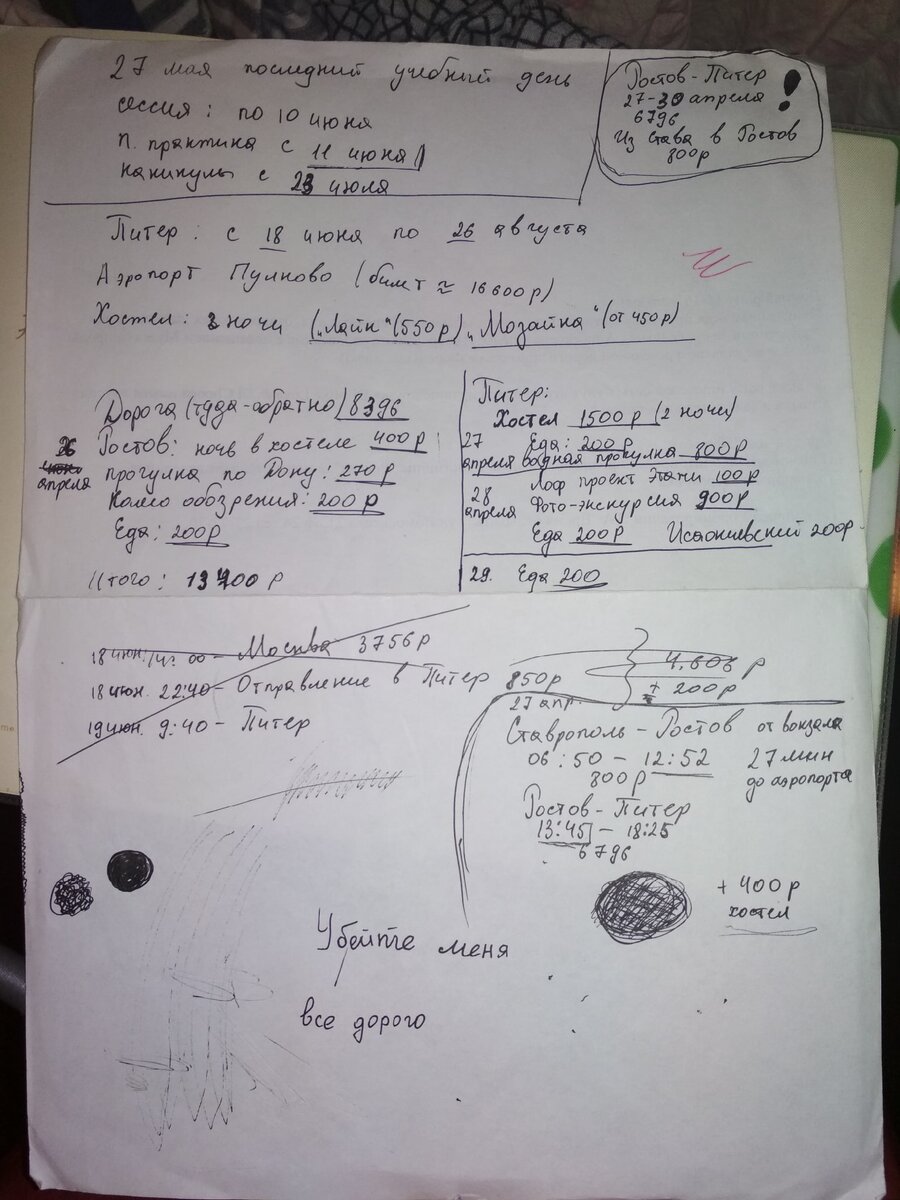 27 мая последний учебный день
сессия: по 10 июня
п. практика с 11 июня
каникулы с 23 июля
Ростов-Питер !
27-30 апреля
6796
Из Става в Ростов
800р
Питер: с 18 июня по 26 августа
Аэропорт Пулково (билт ≈ 16600р)
Хостел: 3 ночи („Лайк“(550р), „Мозайка“(от 450р)
Дорога (туда-обратно) 8396
26 апреля
Ростов: ночь в хостеле 400р
прогулка по Дону: 270р
Колесо обозрения: 200р
Еда: 200р
Итого: 13400р
Питер:
Хостел 1500р (2 ночи)
27 апреля
Еда: 200р
водная прогулка 800р
Лоф проект Этажи 100р
28 апреля
Фото-экскурсия 900р
Еда 200р Исаакиевский 200р
29. Еда 200
18 июн. 14:00 - Москва 3756р
18 июн. 22:40 - Отправление в Питер 850р
19 июн. 9:40 - Питер
4.606р
+ 200р
27 апр.
Ставрополь - Ростов от вокзала
06:50 - 12:52 27 мин
800р до аэропорта
Ростов-Питер
13:45 - 18:25
6796
+ 400р
хостел
Убейте меня
все дорого